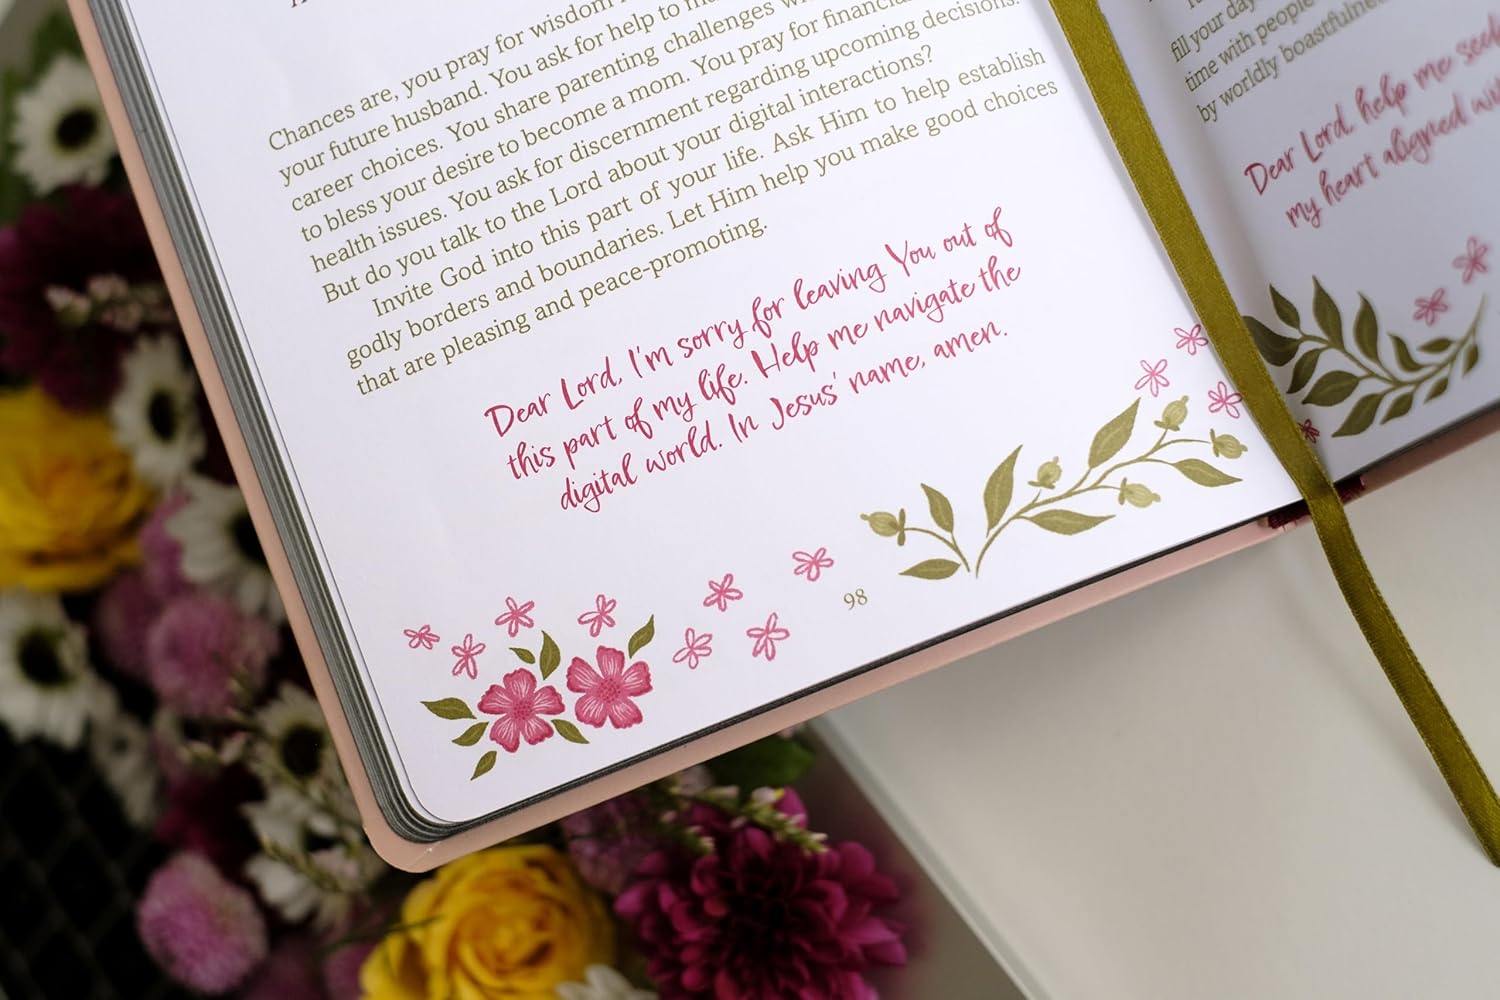 Chances are, you pray for wisdom
your future husband. You ask for help to
career choices. You share parenting challenges
to bless your desire to become a mom. You pray for financial
health issues. You ask for discernment regarding upcoming decisions.
But do you talk to the Lord about your digital interactions?
Invite God into this part of your life. Ask Him to help establish
godly borders and boundaries. Let Him help you make good choices
that are pleasing and peace-promoting.
Dear Lord, I'm sorry for leaving You out of
this part of my life. Help me navigate the
digital world. In Jesus' name, amen.
98
fill your day
time with people
by worldly boastfulness
Dear Lord, help me seek
my heart aligned